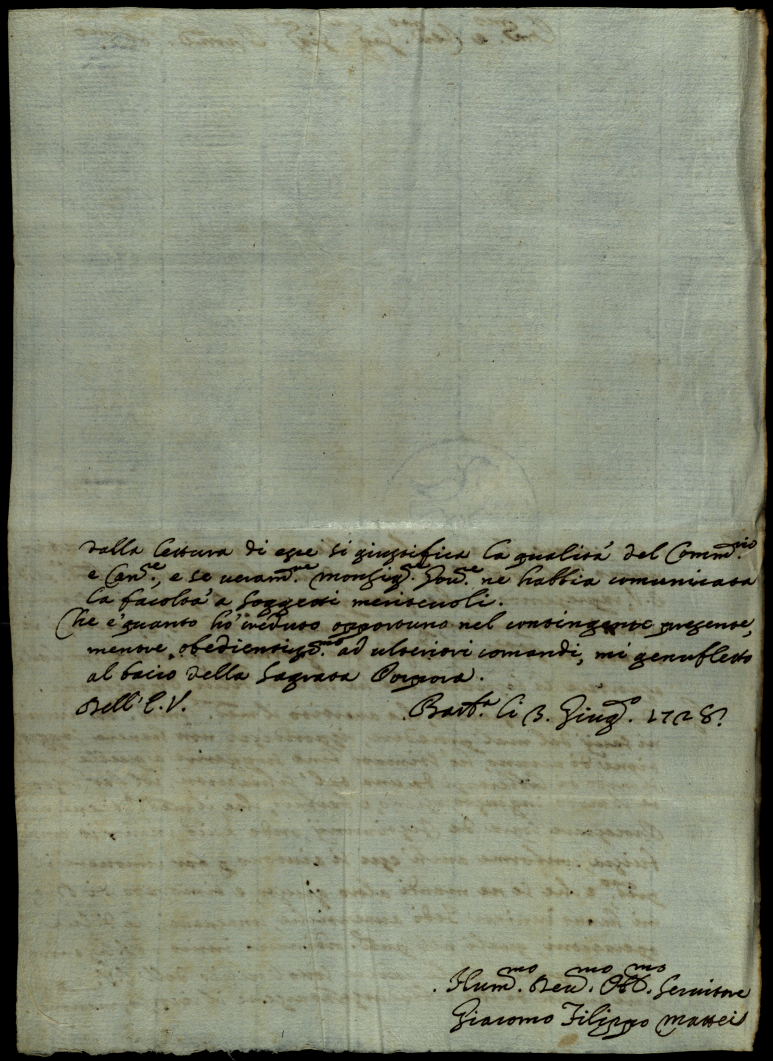 dalla lettura di esse si giustifica la qualità del Comm.rio
e Can.re, e se veram.te Monsig.r Gov.re ne habbia comunicata
la facoltà a soggetti meritevoli.
Che è quanto hò creduto opportuno nel contingente presente,
mentre obedientiss.mo ad ulteriori comandi, mi genufletto
al bacio della Sagrata Porpora.
Dell'E.V. Barb.a li 3. Giug.o 1728.
Hum.mo Dev.mo Obb.mo Servitore
Giacomo Filippo Mattei